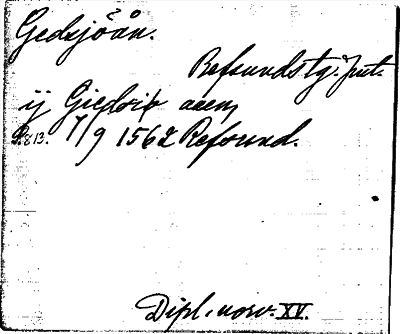 Gedsjöån.
Refsunds tg. Jmt.
ij Giedzsiö aaen
s. 813. 7/9 1562 Refsund.
Dipl. norv. XV.